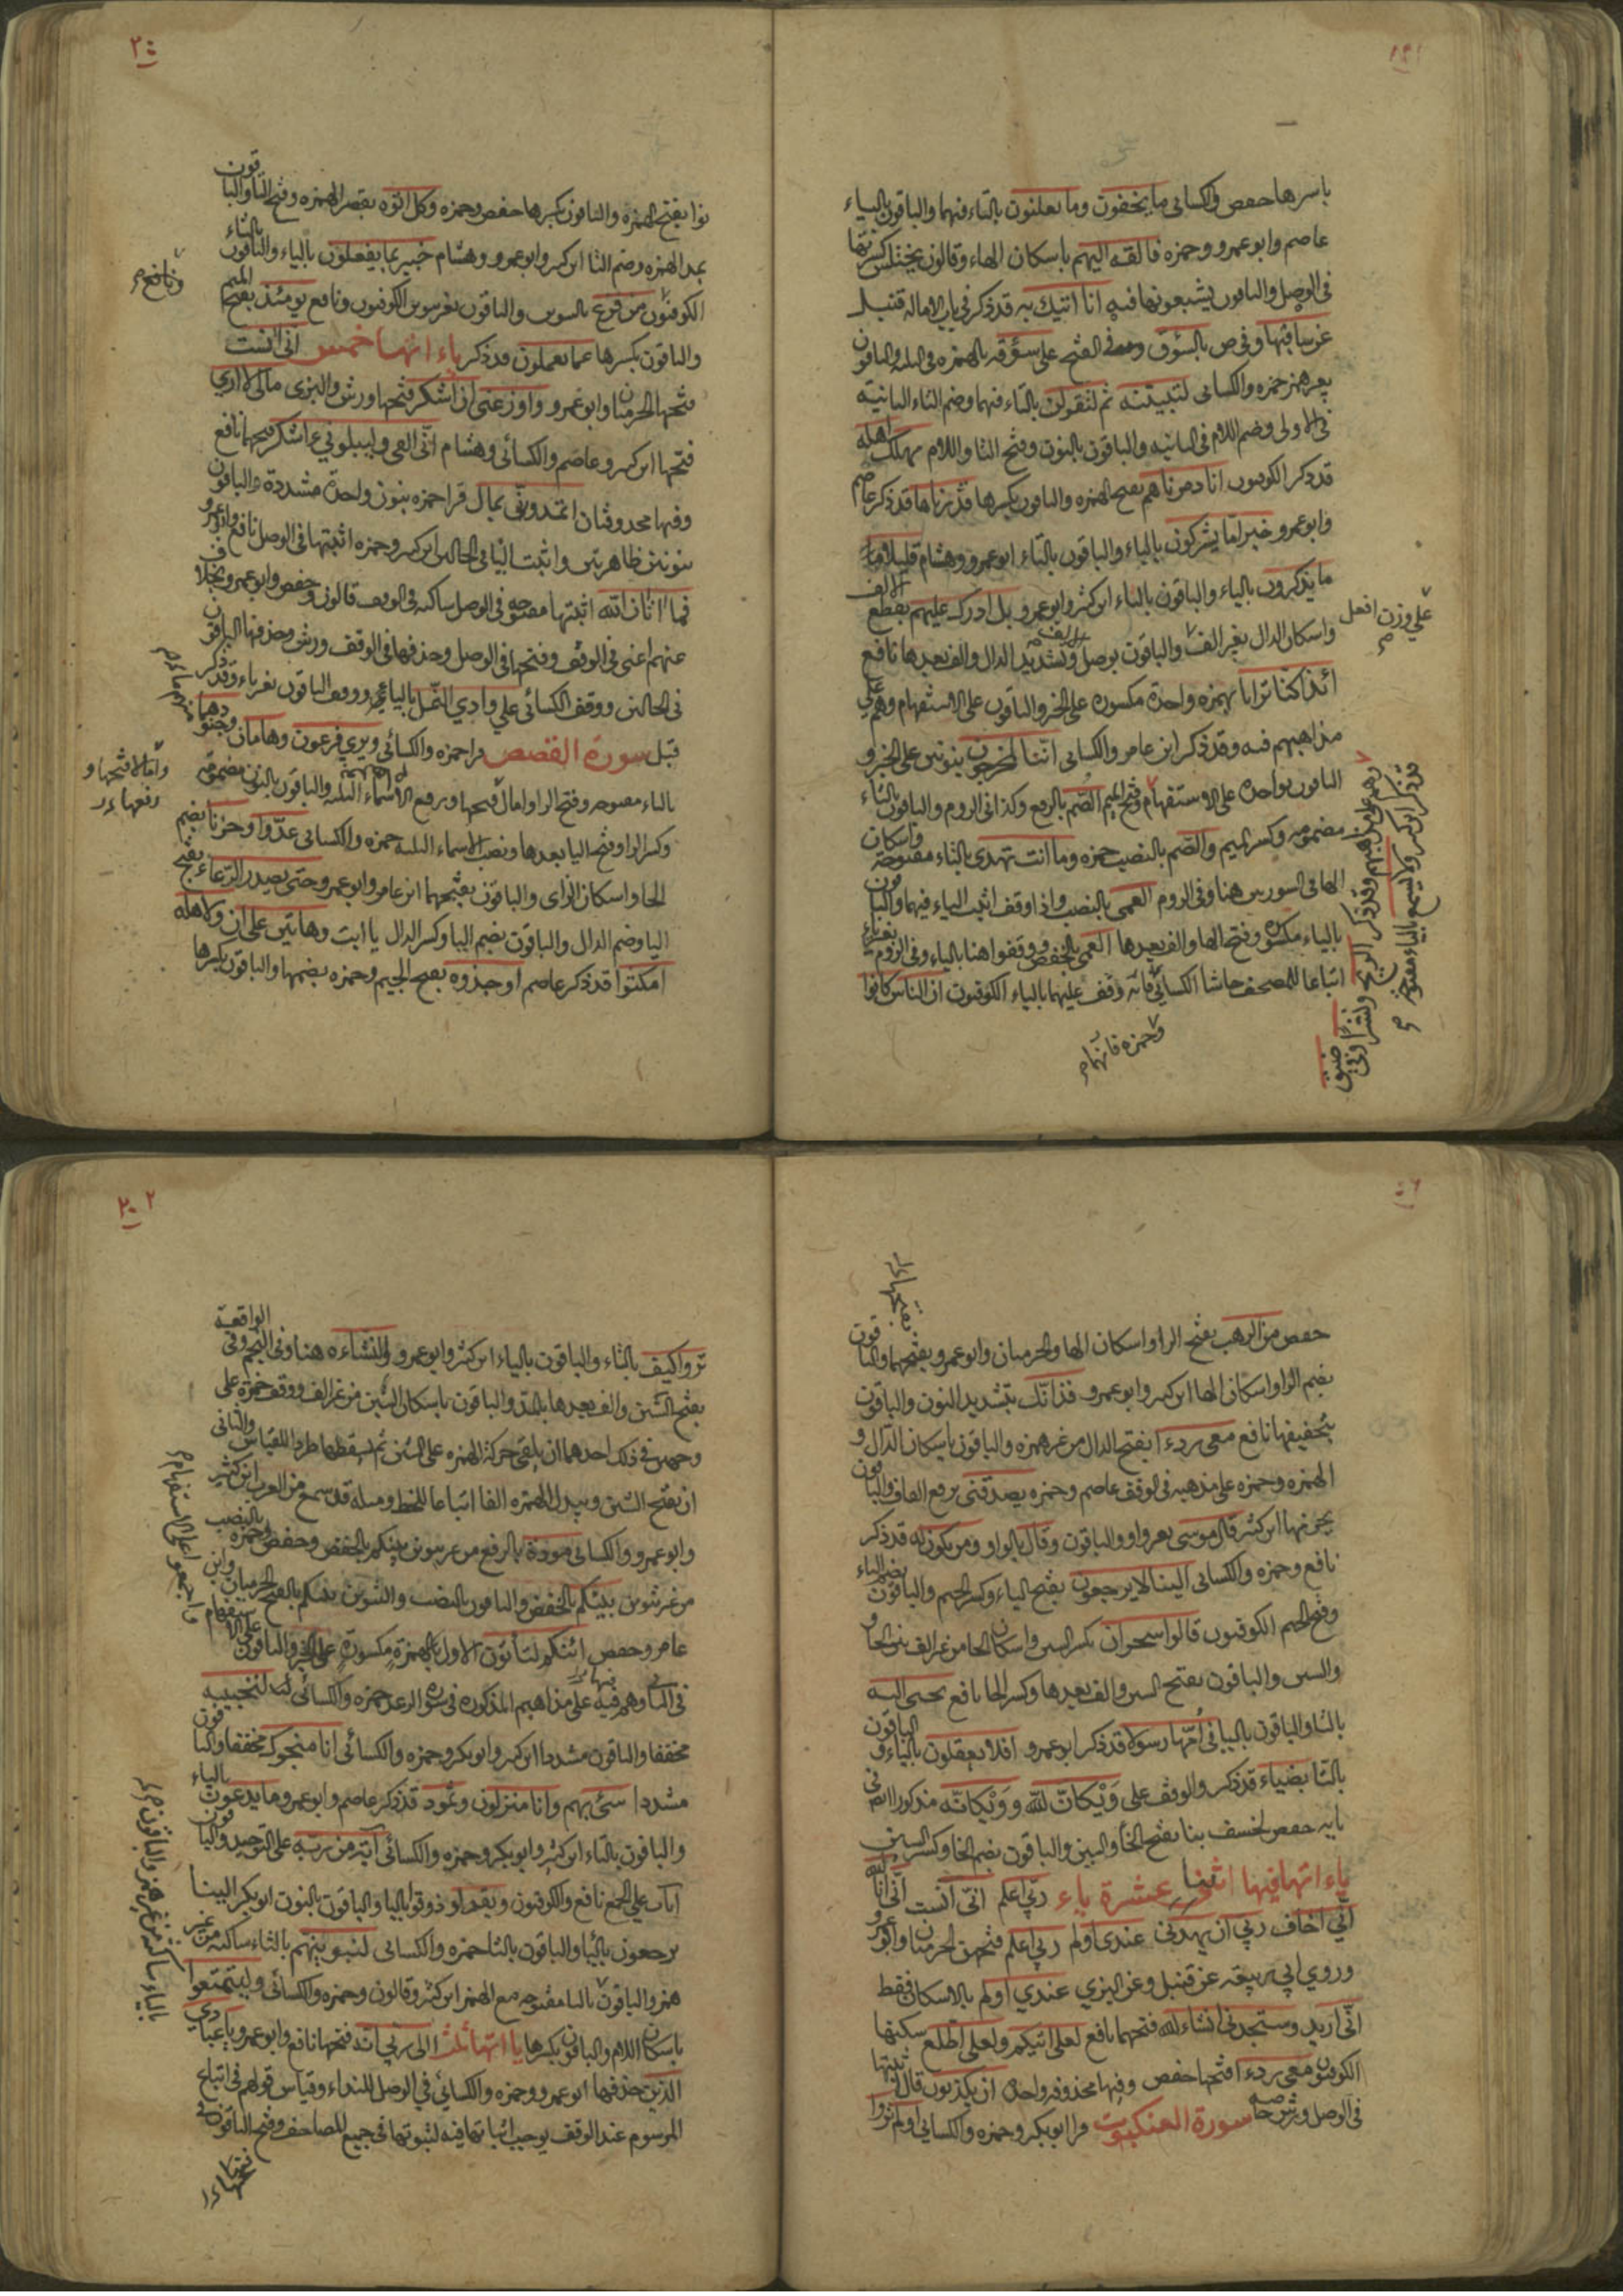 باسرها حفص والكسائي ما يخفون وما يعلنون بالتاء فيهما والباقون بالياء
عاصم وابو عمرو وحمزه فالقه اليهم باسكان الهاء وقالون يختلس كسرتها
في الوصل والباقون يشبعونها فيه انا اتيك به قد ذكر في باب الاماله قنبل
عن ساقيها وفي ص بالسؤق وفي الفتح على سؤقه بالهمزه في الثلثه والباقون
بغير همز حمزه والكسائي لتبيتنه ثم لتقولن بالتاء فيهما وضم التاء الثانية
في الاولى وضم اللام في الثانيه والباقون بالنون وفتح التا واللام مهلك اهله
قد ذكر الكوفيون انا دمرناهم بفتح الهمزه والباقون بكسرها قدرناها قد ذكر عاصم
وابو عمرو خير اما يشركون بالياء والباقون بالتاء ابو عمرو وهشام قليلا ما
ما يذكرون بالياء والباقون بالتاء ابن كثير وابو عمرو بل ادرك عليهم بقطع الالف
واسكان الدال بغير الف والباقون بوصل الالف وتشديد الدال والف بعدها نافع
على وزن افعل
ائذا كنا ترابا بهمزه واحدة مكسوره على الخبر والباقون على الاستفهام وهم على
مذاهبهم فيه وقد ذكر ابن عامر والكسائي اننا لمخرجون بنونين على الخبر و
الباقون بواحدة على الاستفهام وفتح الميم الصم بالرفع وكذا في الروم والباقون بالتاء
مضمومه وكسر الميم والصم بالنصب حمزه وما انت تهدي بالتاء مفتوحة واسكان
الها في السورتين هنا وفي الروم العمي بالنصب واذا وقف اثبت الياء فيهما والباقون
بالباء مكسوره وفتح الها والف بعدها العمي بالخفض ووقفوا هنا بالياء وفي الروم بغير ياء
اتباعا للمصحف حاشا الكسائي فانه وقف عليهما بالياء الكوفيون ان الناس كانوا
وحمزه فانهما
٢٠٠
بفتح الهمزه والباقون بكسرها حفص وحمزه وكل اتوه بقصر الهمزه وفتح التا والباقون
بمد الهمزه وضم التا ابن كثير وابو عمرو وهشام خبير بما يفعلون بالياء والباقون بالتاء
الكوفيون من فزع بالتنوين والباقون بغير تنوين الكوفيون ونافع يومئذ بفتح الميم
ونافع
والباقون بكسرها عما تعملون قد ذكر ياء اتها خمس اني انست
فتحها الحرميان وابو عمرو واوزعني ان اشكر فتحها ورش والبزي مالي لا اري
فتحها ابن كثير وعاصم والكسائي وهشام اني القي وليبلوني ءاشكر فتحهما نافع
وفيها محذوفتان اتمدونني بمال قرا حمزه بنون واحدة مشددة والباقون
بنونين ظاهرتين واثبت اليا في الحالين ابن كثير وحمزه اثبتها في الوصل نافع وابو عمرو
فما اتان الله اثبتها مفتوحه في الوصل ساكنه في الوقف قالون وحفص وابو عمرو بخلاف
عنهم اعني في الوقف وفتحها في الوصل وحذفها في الوقف ورش وحذفها الباقون
في الحالين ووقف الكسائي علي وادي النمل بالياء ووقف الباقون بغير ياء وقد ذكر
قبل سورة القصص قرا حمزه والكسائي ويري فرعون وهامان وجنودهما
بالياء مفتوحه وفتح الرا وامال فتحها ورفع الاسماء الثلثه والباقون بالنون مضمومه
وامالا فتحها و
رفعها
وكسر الرا وفتح اليا بعدها ونصب الاسماء الثلثه حمزه والكسائي عدوا وحزنا بضم
الحا واسكان الزاي والباقون بفتحهما ابن عامر وابو عمرو حتى يصدر الرعاء بفتح
اليا وضم الدال والباقون بضم اليا وكسر الدال يا ابت وهاتين على ان ولاهله
امكثوا قد ذكر عاصم او جذوه بفتح الجيم وحمزه بضمها والباقون بكسرها
حفص من الرهب بفتح الرا واسكان الها والحرميان وابو عمرو بفتحهما والباقون
بضم الرا واسكان الها ابن كثير وابو عمرو فذانك بتشديد النون والباقون
بتخفيفها نافع معي ردءا بفتح الدال من غير همزه والباقون باسكان الدال و
الهمزه وحمزه على مذهبه في الوقف عاصم وحمزه يصدقني برفع القاف والباقون
بجزمها ابن كثير قال موسى بغير واو والباقون وقال بالواو ومن يكون له قد ذكر
نافع وحمزه والكسائي الينا لا يرجعون بفتح الياء وكسر الجيم والباقون بضم الياء
وفتح الجيم الكوفيون قالوا سحران بكسر السين واسكان الحا من غير الف
والسين والباقون بفتح السين والف بعدها وكسر الحا نافع تجبى اليه
بالتا والباقون باليا في امها رسولا قد ذكر ابو عمرو افلا يعقلون بالياء والباقون
بالتا بضياء قد ذكر والوقف على ويكان الله وويكانه مذكور ايضا في
بابه حفص لخسف بنا بفتح الخا والسين والباقون بضم الخا وكسر السين
ياء اتها فيها اثنتا عشرة ياء ربي اعلم اني انست اني انا الله
اني اخاف ربي ان يهديني عندي اولم ربي اعلم فتحهن الحرميان وابو عمرو
وروي ابي ربيعه عن قنبل وعن البزي عندي اولم بالاسكان فقط
اني اريد وستجدني ان شاء الله فتحهما نافع لعلي اتيكم ولعلي اطلع سكنهما
الكوفيون معي ردءا فتحها حفص وفيها محذوفه واحدة ان يكذبون قال اثبتها
في الوصل ورش خاصه سورة العنكبوت قرا ابو بكر وحمزه والكسائي اولم تروا
٢٠٢
تروا كيف بالتاء والباقون بالياء ابن كثير وابو عمرو النشاءه هنا وفي النجم وفي الواقعة
بفتح الشين والف بعدها بالمد والباقون باسكان الشين من غير الف ووقف حمزه على
وجهين في ذلك احدهما ان يلقي حركة الهمزه على الشين ثم يسقطها طردا للقياس والثاني
ان يفتح الشين ويبدل الهمزه الفا اتباعا للخط ومثله قد سمع من العرب ابن كثير
وابو عمرو والكسائي مودة بالرفع من غير تنوين بينكم بالخفض وحفص وحمزه بالنصب
من غير تنوين بينكم بالخفض والباقون بالنصب والتنوين بينكم بالفتح الحرميان وابن
عامر وحفص ائنكم لتاتون الاول بهمزة مكسورة على الخبر والباقون على الاستفهام
في الثاني وهم فيه على مذاهبهم المذكوره في سورة الرعد حمزه والكسائي لننجينه
مخففا والباقون مشددا ابن كثير وابو بكر وحمزه والكسائي انا منجوك مخففا والباقون
مشددا سيء بهم وانا منزلون وثمود قد ذكر عاصم وابو عمرو وما يدعون بالياء
والباقون بالتاء ابن كثير وابو بكر وحمزه والكسائي آية من ربه على التوحيد والباقون
آيات على الجمع نافع والكوفيون ويقول ذوقوا باليا والباقون بالنون ابو بكر الينا
يرجعون باليا والباقون بالتا حمزه والكسائي لنبوينهم بالثاء ساكنه من غير
همز والباقون بالبا مفتوحه مع الهمز ابن كثير وقالون وحمزه والكسائي وليتمتعوا
باسكان اللام والباقون بكسرها يا اتها ثلث الى ربي انه فتحها نافع وابو عمرو يا عبادي
الذين حذفها ابو عمرو وحمزه والكسائي في الوصل للنداء وقياس قولهم في اتباع
المرسوم عند الوقف يوجب اثباتها فيه لثبوتها في جميع المصاحف وفتح الباقون في